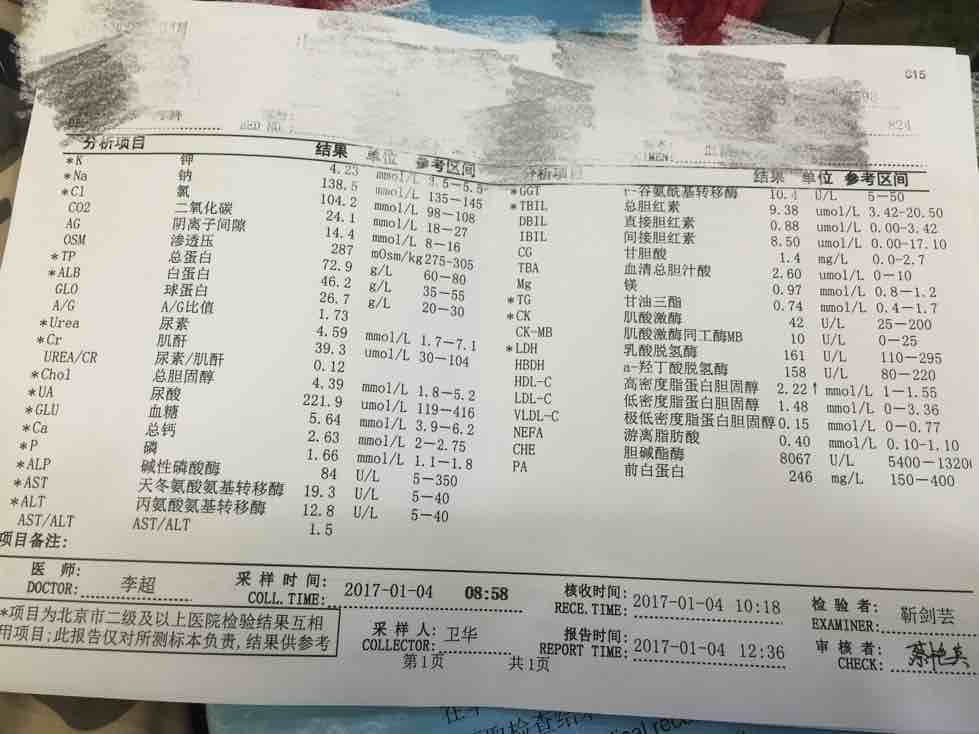 615
824
分析项目 结果 单位 参考区间
*K 钾 4.23 mmol/L 3.5-5.5
*Na 钠 138.5 mmol/L 135-145
*Cl 氯 104.2 mmol/L 98-108
CO2 二氧化碳 24.1 mmol/L 18-27
AG 阴离子间隙 14.4 mmol/L 8-16
OSM 渗透压 287 mOsm/kg 275-305
*TP 总蛋白 72.9 g/L 60-80
*ALB 白蛋白 46.2 g/L 35-55
GLO 球蛋白 26.7 g/L 20-30
A/G A/G比值 1.73
*Urea 尿素 4.59 mmol/L 1.7-7.1
*Cr 肌酐 39.3 umol/L 30-104
UREA/CR 尿素/肌酐 0.12
*Chol 总胆固醇 4.39 mmol/L 1.8-5.2
*UA 尿酸 221.9 umol/L 119-416
*GLU 血糖 5.64 mmol/L 3.9-6.2
*Ca 总钙 2.63 mmol/L 2-2.75
*P 磷 1.66 mmol/L 1.1-1.8
*ALP 碱性磷酸酶 84 U/L 5-350
*AST 天冬氨酸氨基转移酶 19.3 U/L 5-40
*ALT 丙氨酸氨基转移酶 12.8 U/L 5-40
AST/ALT AST/ALT 1.5
分析项目 结果 单位 参考区间
*GGT 谷氨酰基转移酶 10.4 U/L 5-50
*TBIL 总胆红素 9.38 umol/L 3.42-20.50
DBIL 直接胆红素 0.88 umol/L 0.00-3.42
IBIL 间接胆红素 8.50 umol/L 0.00-17.10
CG 甘胆酸 1.4 mg/L 0.0-2.7
TBA 血清总胆汁酸 2.60 umol/L 0-10
Mg 镁 0.97 mmol/L 0.8-1.2
*TG 甘油三酯 0.74 mmol/L 0.4-1.7
*CK 肌酸激酶 42 U/L 25-200
CK-MB 肌酸激酶同工酶MB 10 U/L 0-25
*LDH 乳酸脱氢酶 161 U/L 110-295
HBDH a-羟丁酸脱氢酶 158 U/L 80-220
HDL-C 高密度脂蛋白胆固醇 2.22↑ mmol/L 1-1.55
LDL-C 低密度脂蛋白胆固醇 1.48 mmol/L 0-3.36
VLDL-C 极低密度脂蛋白胆固醇 0.15 mmol/L 0-0.77
NEFA 游离脂肪酸 0.40 mmol/L 0.10-1.10
CHE 胆碱酯酶 8067 U/L 5400-13200
PA 前白蛋白 246 mg/L 150-400
项目备注:
医 师: DOCTOR: 李超
采样时间: COLL.TIME: 2017-01-04 08:58
核收时间: RECE.TIME: 2017-01-04 10:18
检验者: EXAMINER: 靳剑芸
*项目为北京市二级及以上医院检验结果互相
用项目;此报告仅对所测标本负责,结果供参考
采样人: COLLECTOR: 卫华
报告时间: REPORT TIME: 2017-01-04 12:36
审核者: CHECK:
第1页 共1页